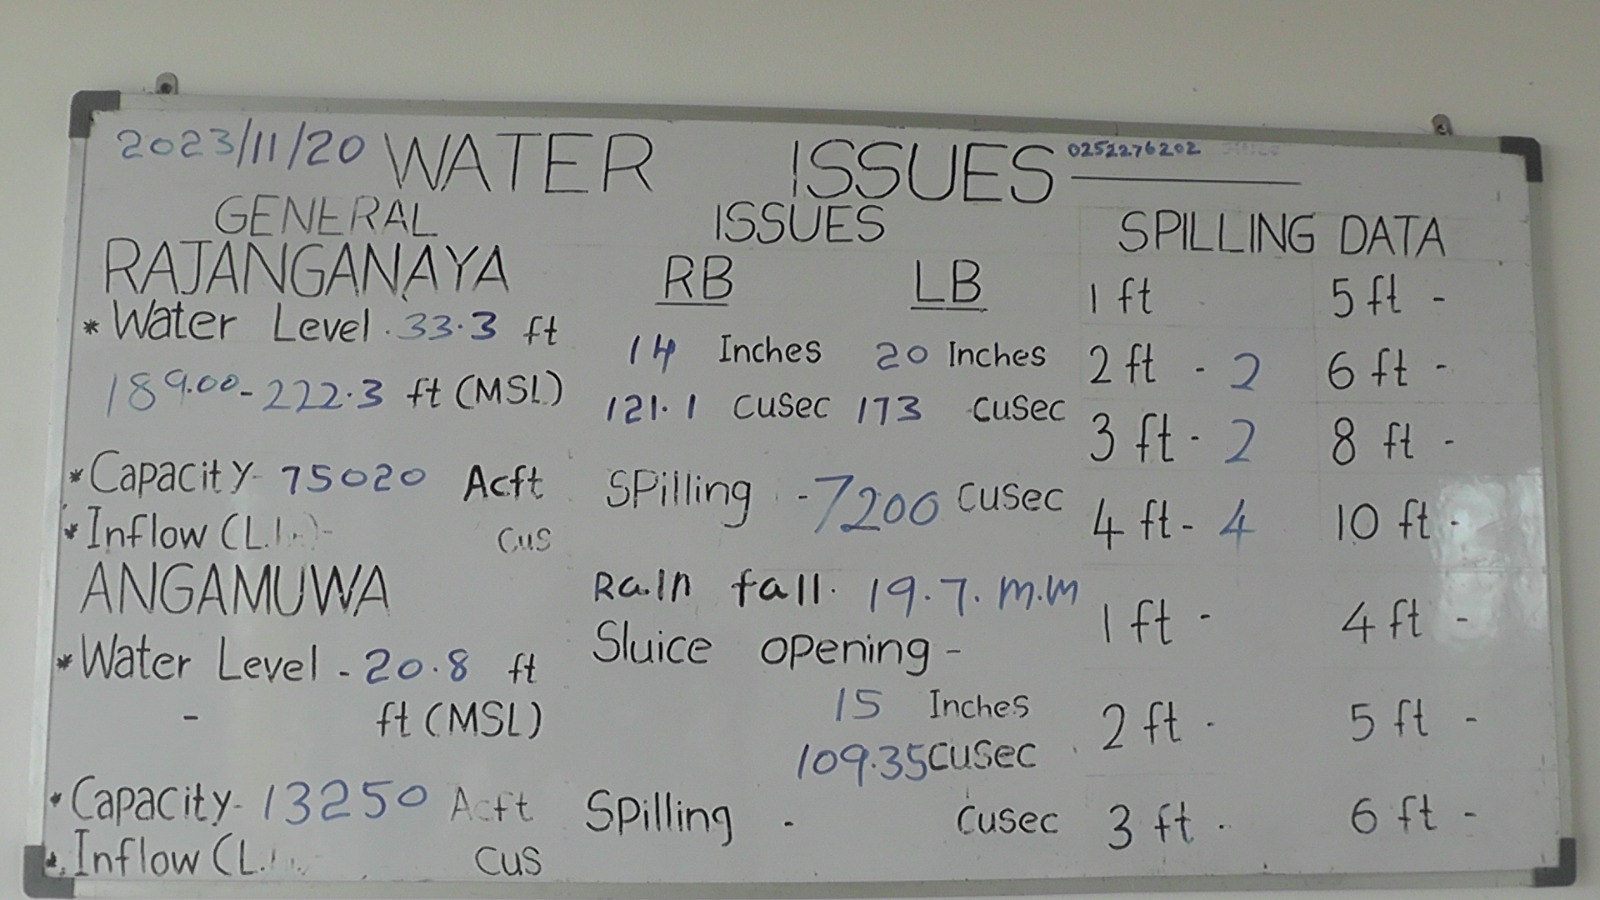 2023/11/20 WATER ISSUES 0252276202
GENERAL
RAJANGANAYA
* Water Level . 33.3 ft
189.00 - 222.3 ft (MSL)
* Capacity - 75020 Acft
* Inflow (L. - cus
ANGAMUWA
* Water Level - 20.8 ft
- ft (MSL)
* Capacity - 13250 Acft
* Inflow (L. cus
ISSUES
RB LB
14 Inches 20 Inches
121.1 cusec 173 cusec
Spilling - 7200 cusec
Rain fall. 19.7. m.m
Sluice opening -
15 Inches
109.35 cusec
Spilling - cusec
SPILLING DATA
1 ft 5 ft -
2 ft - 2 6 ft -
3 ft - 2 8 ft -
4 ft - 4 10 ft -
1 ft - 4 ft -
2 ft - 5 ft -
3 ft - 6 ft -